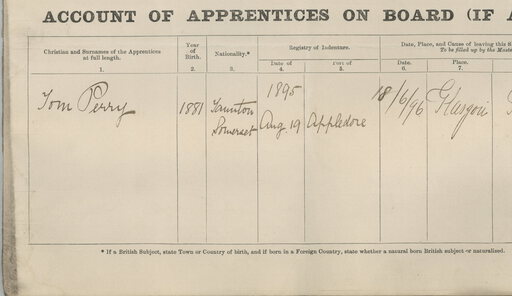 ACCOUNT OF APPRENTICES ON BOARD (IF A
Christian and Surnames of the Apprentices at full length.
1.
Year of Birth.
2.
Nationality.*
3.
Registry of Indenture.
Date of
4.
Port of
5.
Date, Place, and Cause of leaving this S
To be filled up by the Maste
Date.
6.
Place.
7.
Tom Perry
1881
Taunton
Somerset
1895
Aug. 19
Appledore
18/6/96
Glasgow
* If a British Subject, state Town or Country of birth, and if born in a Foreign Country, state whether a natural born British subject or naturalized.